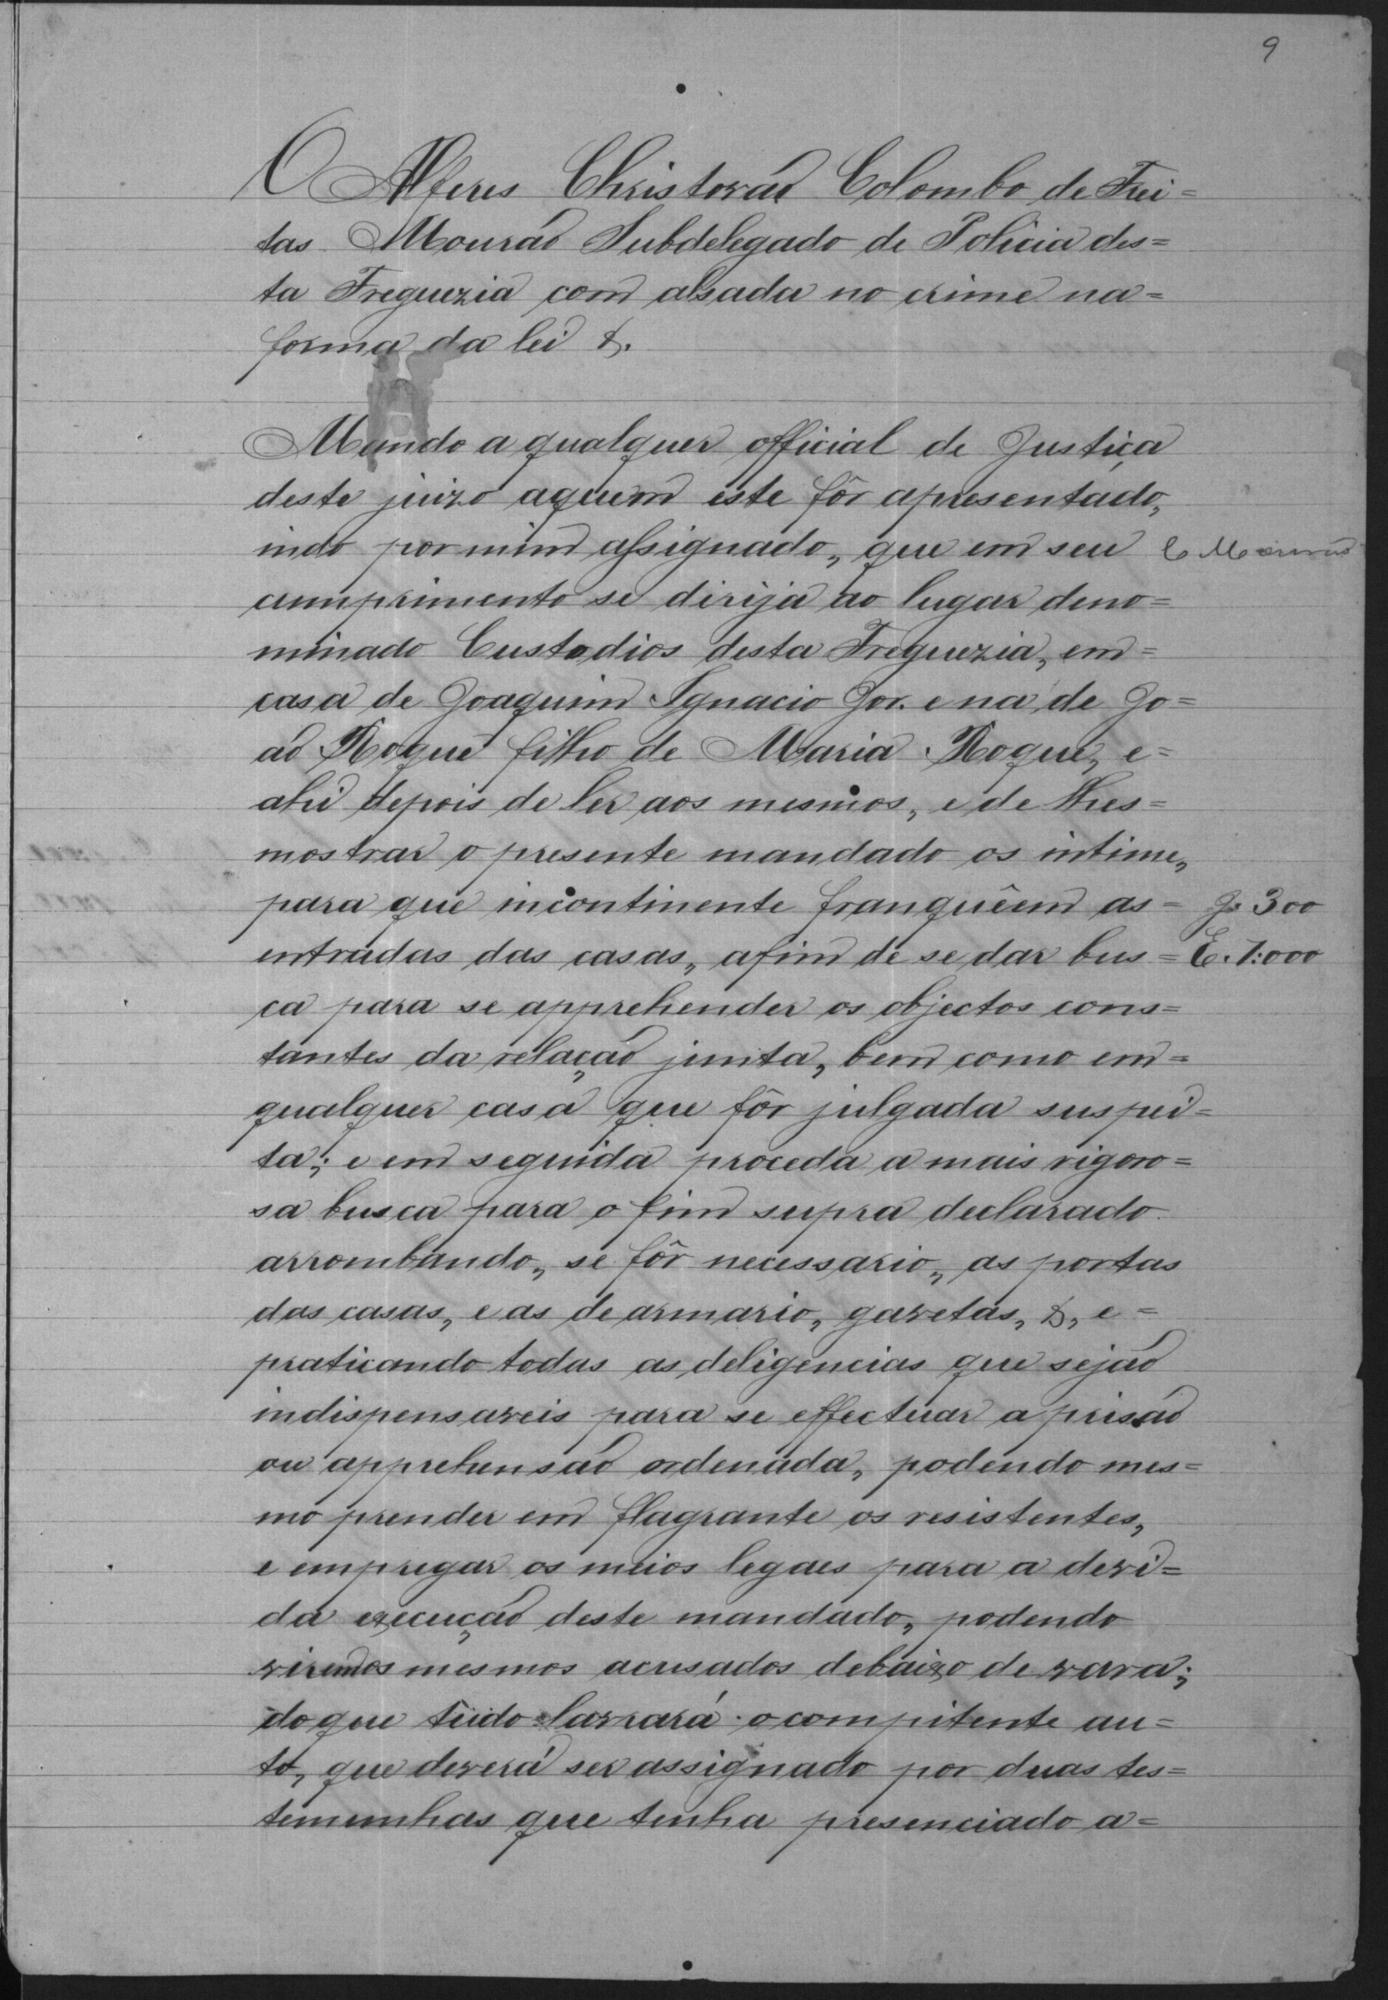 9
O Alferes Christovaõ Colombo de Frei=
tas Mouraõ Subdelegado de Policia des=
ta Freguezia com alsada no crime na=
forma da lei &.
Mando a qualquer official de Justiça
deste juizo aquem este fôr apresentado,
indo por mim assignado, que em seu
cumprimento se dirija ao lugar deno=
minado Custodios desta Freguezia, em=
casa de Joaquim Ignacio Jor. e na de Jo=
aõ Roque filho de Maria Roque, e=
ahi depois de ler aos mesmos, e de lhes=
mostrar o presente mandado os intime,
para que incontinente franquêem as= J. 300
entradas das casas, afim de se dar bus= E. 1:000
ca para se apprehender os objectos cons=
tantes da relaçaõ junta, bem como em=
qualquer casa que fôr julgada suspei=
ta; e em seguida proceda a mais rigoro=
sa busca para o fim supra declarado
arrombando, se fôr necessario, as portas
das casas, e as de armario, gavetas, &, e=
praticando todas as deligencias que sejaõ
indispensaveis para se effectuar a prisaõ
ou apprehensaõ ordenada, podendo mes=
mo prender em flagrante os resistentes,
e empregar os meios legaes para a devi=
da execuçaõ deste mandado, podendo
virem os mesmos acusados debaixo de vara;
do que tudo lavrará o competente au=
to, que deverá ser assignado por duas tes=
temunhas que tenha presenciado a=